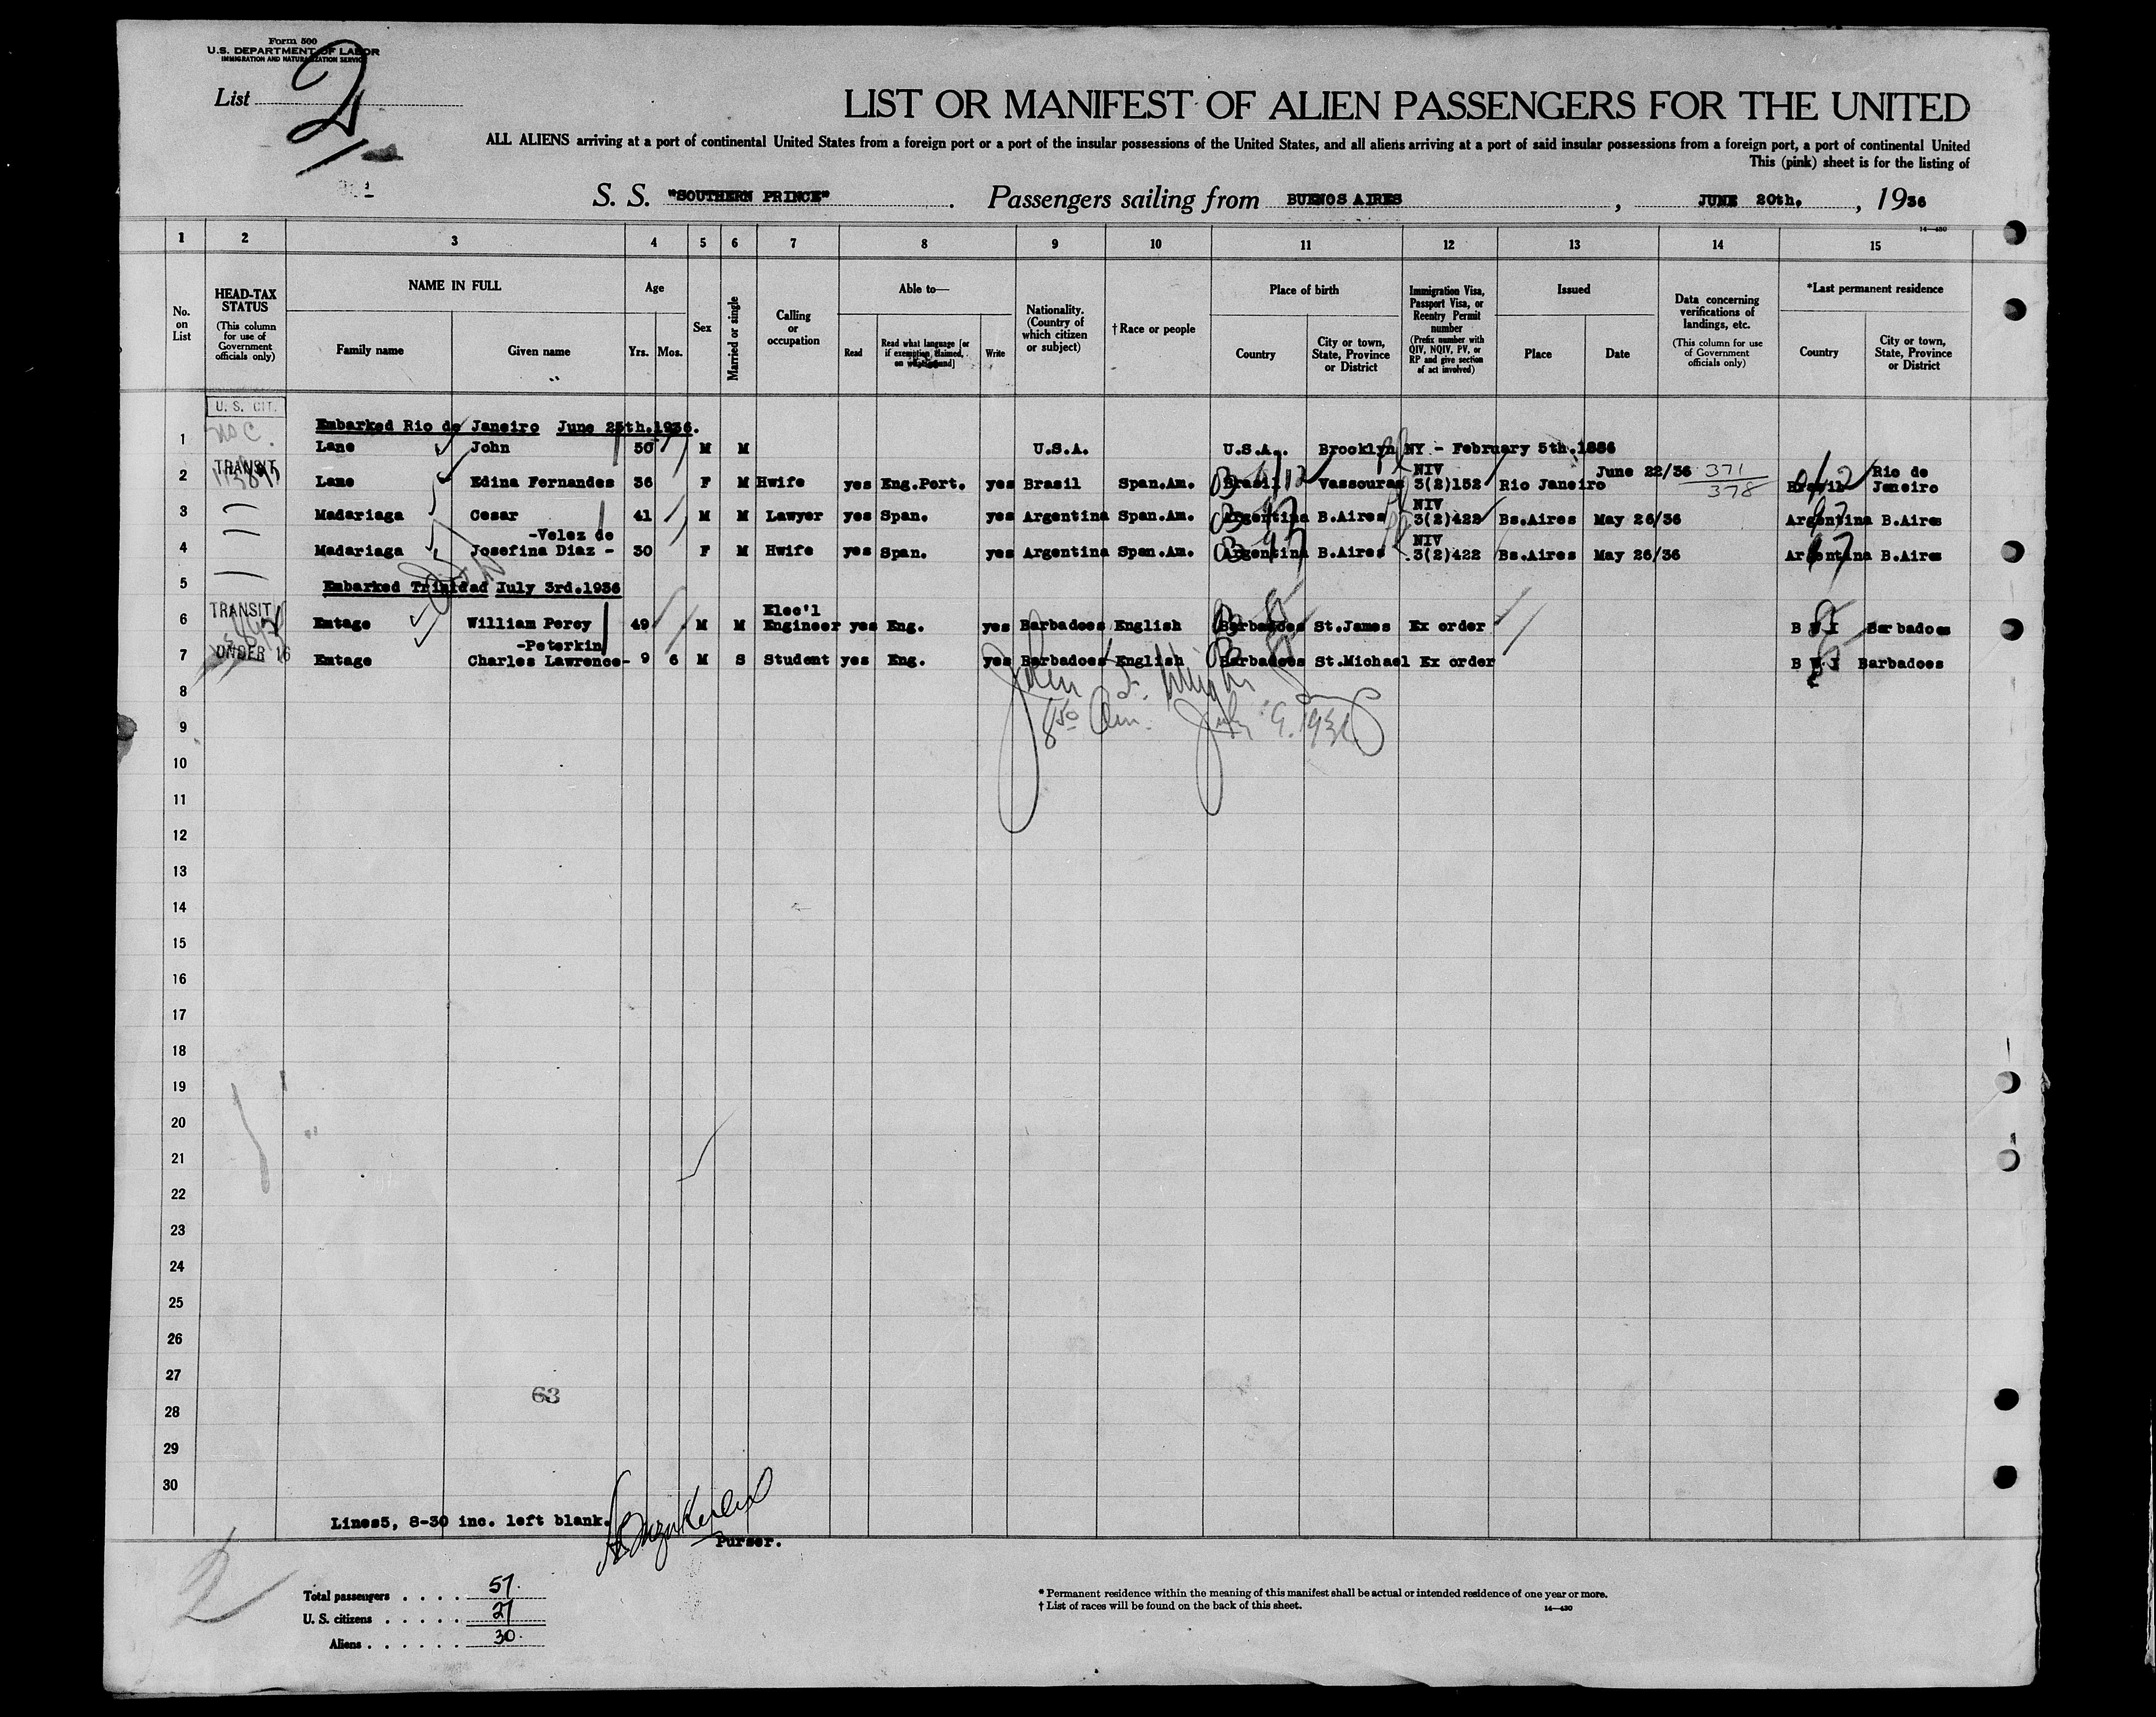 Form 500
U.S. DEPARTMENT OF LABOR
IMMIGRATION AND NATURALIZATION SERVICE
List 2
LIST OR MANIFEST OF ALIEN PASSENGERS FOR THE UNITED
ALL ALIENS arriving at a port of continental United States from a foreign port or a port of the insular possessions of the United States, and all aliens arriving at a port of said insular possessions from a foreign port, a port of continental United
This (pink) sheet is for the listing of
S. S. "SOUTHERN PRINCE". Passengers sailing from BUENOS AIRES, JUNE 20th., 1936
14—430
1 2 3 4 5 6 7 8 9 10 11 12 13 14 15
No. on List
HEAD-TAX STATUS
(This column for use of Government officials only)
NAME IN FULL
Family name
Given name
Age
Yrs. Mos.
Sex
Married or single
Calling or occupation
Able to—
Read
Read what language [or if exemption claimed, on what ground]
Write
Nationality. (Country of which citizen or subject)
† Race or people
Place of birth
Country
City or town, State, Province or District
Immigration Visa, Passport Visa, or Reentry Permit number
(Prefix number with QIV, NQIV, PV, or RP and give section of act involved)
Issued
Place
Date
Data concerning verifications of landings, etc.
(This column for use of Government officials only)
*Last permanent residence
Country
City or town, State, Province or District
U. S. CIT.
Embarked Rio de Janeiro June 25th.1936.
1 Lane John 50 M M U.S.A. U.S.A. Brooklyn NY - February 5th.1886
TRANSIT
NIV June 22/36 371 Rio de
2 Lane Edina Fernandes 36 F M Hwife yes Eng.Port. yes Brasil Span.Am. Brasil Vassouras 3(2)152 Rio Janeiro 378 Brasil Janeiro
NIV
3 Madariaga Cesar 41 M M Lawyer yes Span. yes Argentina Span.Am. Argentina B.Aires 3(2)422 Bs.Aires May 26/36 Argentina B.Aires
-Velez de NIV
4 Madariaga Josefina Diaz - 30 F M Hwife yes Span. yes Argentina Span.Am. Argentina B.Aires 3(2)422 Bs.Aires May 26/36 Argentina B.Aires
5 Embarked Trinidad July 3rd.1936
TRANSIT Elec'l
6 Emtage William Percy 49 M M Engineer yes Eng. yes Barbadoes English Barbadoes St.James Ex order B W I Barbadoes
UNDER 16 -Peterkin
7 Emtage Charles Lawrence- 9 6 M S Student yes Eng. yes Barbadoes English Barbadoes St.Michael Ex order B W I Barbadoes
8
9
July 9. 1936
10
11
12
13
14
15
16
17
18
19
20
21
22
23
24
25
26
27
63
28
29
30
Lines5, 8-30 inc. left blank.
Purser.
2
Total passengers . . . . 57.
U. S. citizens . . . . . 27
Aliens . . . . . . 30.
* Permanent residence within the meaning of this manifest shall be actual or intended residence of one year or more.
† List of races will be found on the back of this sheet.
14—430